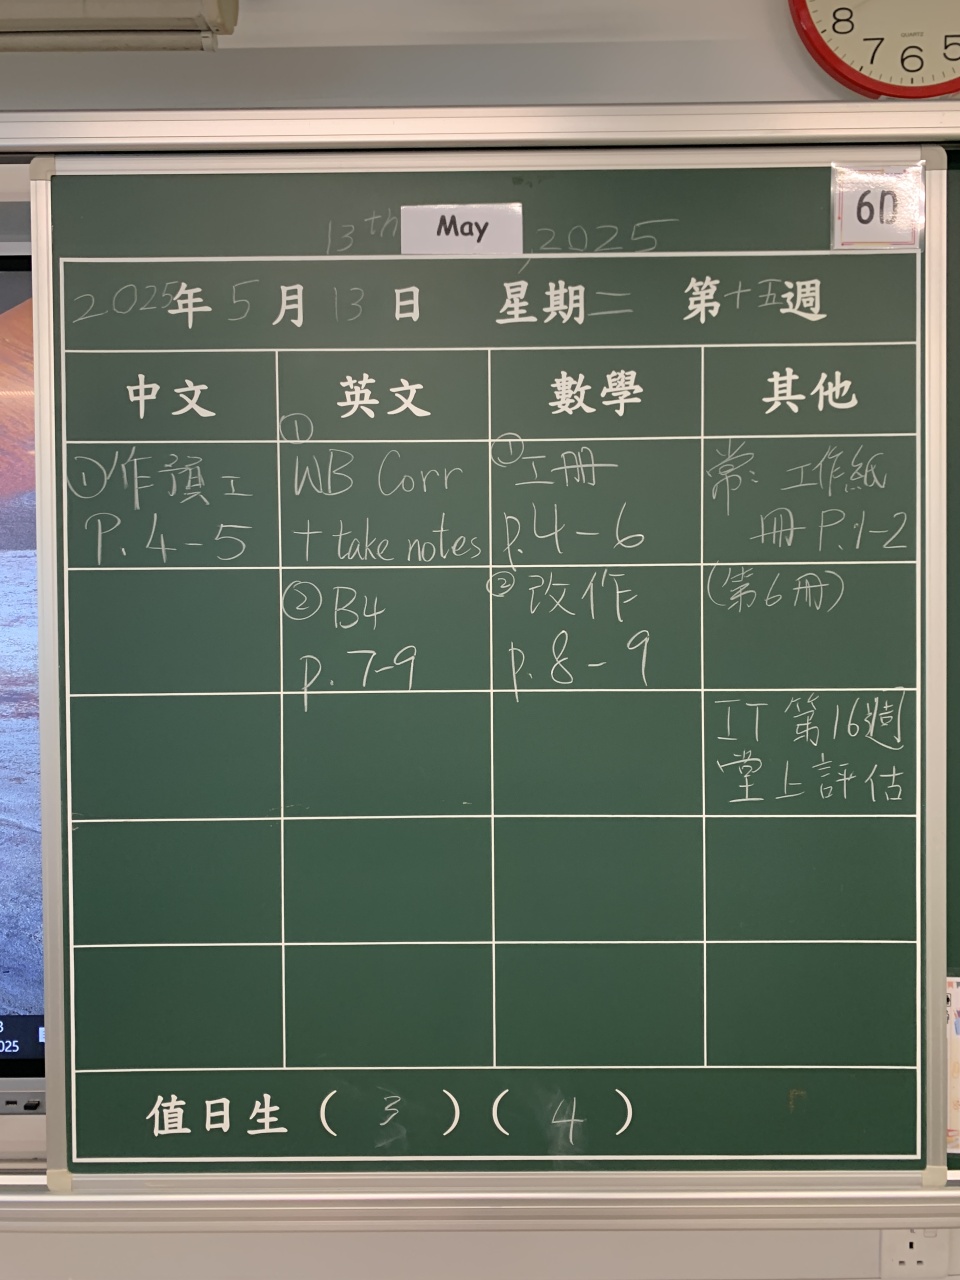 8 7 6 5
QUARTZ
6D
13th May, 2025
2025年5月13日 星期二 第十五週
中文 英文 數學 其他
①作預工
P.4-5
①
WB Corr
+ take notes
①工冊
p.4-6
常：工作紙
冊 P.1-2
②B4
p.7-9
②改作
p.8-9
(第6冊)
IT 第16週
堂上評估
值日生（3）（4）